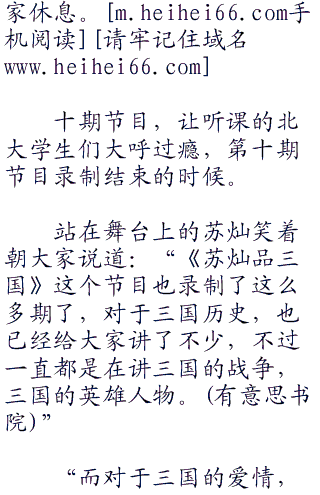 家休息。[m.heihei66.com手
机阅读][请牢记住域名
www.heihei66.com]
十期节目，让听课的北
大学生们大呼过瘾，第十期
节目录制结束的时候。
站在舞台上的苏灿笑着
朝大家说道：“《苏灿品三
国》这个节目也录制了这么
多期了，对于三国历史，也
已经给大家讲了不少，不过
一直都是在讲三国的战争，
三国的英雄人物。(有意思书
院)”
“而对于三国的爱情，